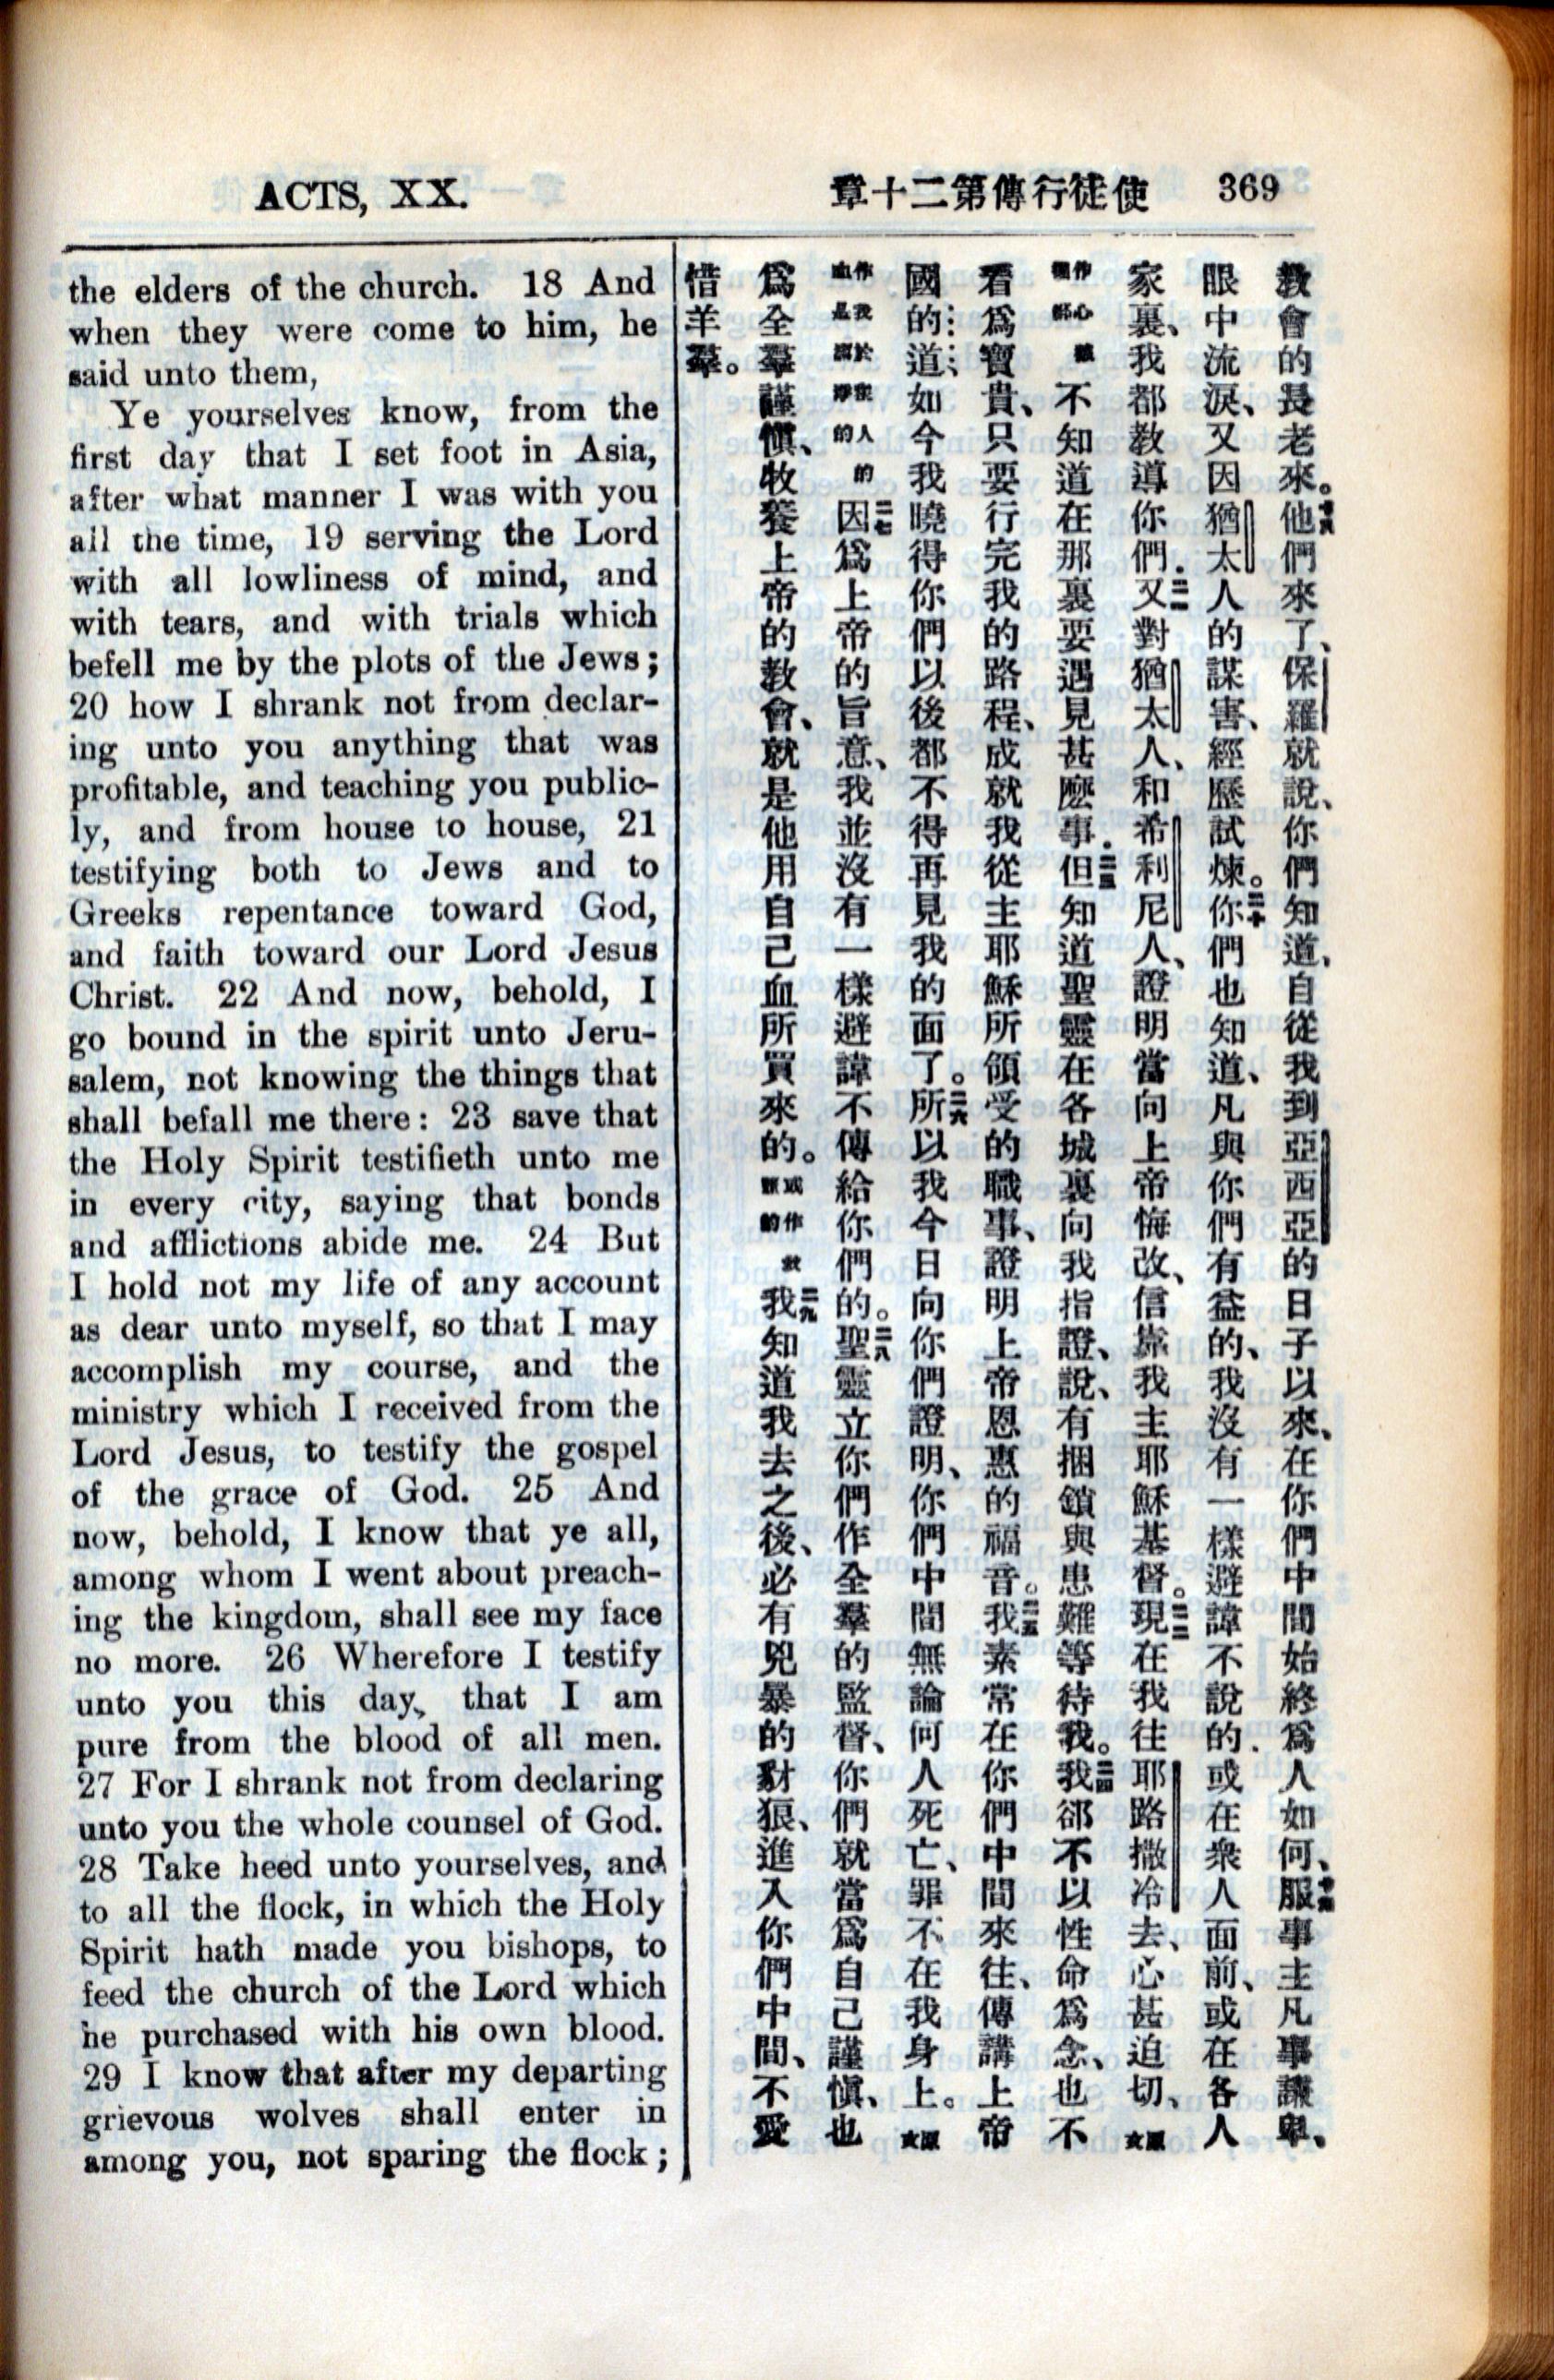 ACTS, XX.
使徒行傳第二十章 369
the elders of the church. 18 And
when they were come to him, he
said unto them,
Ye yourselves know, from the
first day that I set foot in Asia,
after what manner I was with you
all the time, 19 serving the Lord
with all lowliness of mind, and
with tears, and with trials which
befell me by the plots of the Jews;
20 how I shrank not from declar-
ing unto you anything that was
profitable, and teaching you public-
ly, and from house to house, 21
testifying both to Jews and to
Greeks repentance toward God,
and faith toward our Lord Jesus
Christ. 22 And now, behold, I
go bound in the spirit unto Jeru-
salem, not knowing the things that
shall befall me there: 23 save that
the Holy Spirit testifieth unto me
in every city, saying that bonds
and afflictions abide me. 24 But
I hold not my life of any account
as dear unto myself, so that I may
accomplish my course, and the
ministry which I received from the
Lord Jesus, to testify the gospel
of the grace of God. 25 And
now, behold, I know that ye all,
among whom I went about preach-
ing the kingdom, shall see my face
no more. 26 Wherefore I testify
unto you this day, that I am
pure from the blood of all men.
27 For I shrank not from declaring
unto you the whole counsel of God.
28 Take heed unto yourselves, and
to all the flock, in which the Holy
Spirit hath made you bishops, to
feed the church of the Lord which
he purchased with his own blood.
29 I know that after my departing
grievous wolves shall enter in
among you, not sparing the flock;
教會的長老來。十八他們來了、保羅就說、你們知道、自從我到亞西亞的日子以來、在你們中間始終爲人如何、十九服事主凡事謙卑、
眼中流淚、又因猶太人的謀害、經歷試煉。二十你們也知道、凡與你們有益的、我沒有一樣避諱不說的．或在衆人面前、或在各人
家裏、我都教導你們．二一又對猶太人、和希利尼人、證明當向上帝悔改、信靠我主耶穌基督。二二現在我往耶路撒冷去、心甚迫切、原文
作心被捆綁不知道在那裏要遇見甚麼事．二三但知道聖靈在各城裏向我指證、說、有捆鎖與患難等待我。二四我卻不以性命爲念、也不
看爲寶貴、只要行完我的路程、成就我從主耶穌所領受的職事、證明上帝恩惠的福音。二五我素常在你們中間來往、傳講上帝
國的道、如今我曉得你們以後都不得再見我的面了。二六所以我今日向你們證明、你們中間無論何人死亡、罪不在我身上。原文
作我於衆人的血是潔淨的二七因爲上帝的旨意、我並沒有一樣避諱不傳給你們的。二八聖靈立你們作全羣的監督、你們就當爲自己謹慎、也
爲全羣謹慎、牧養上帝的教會、就是他用自己血所買來的。或作救贖的二九我知道我去之後、必有兇暴的豺狼、進入你們中間、不愛
惜羊羣。